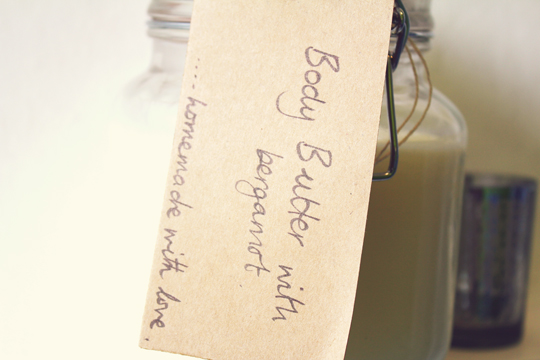 Body Butter with
bergamot
.... homemade with love.